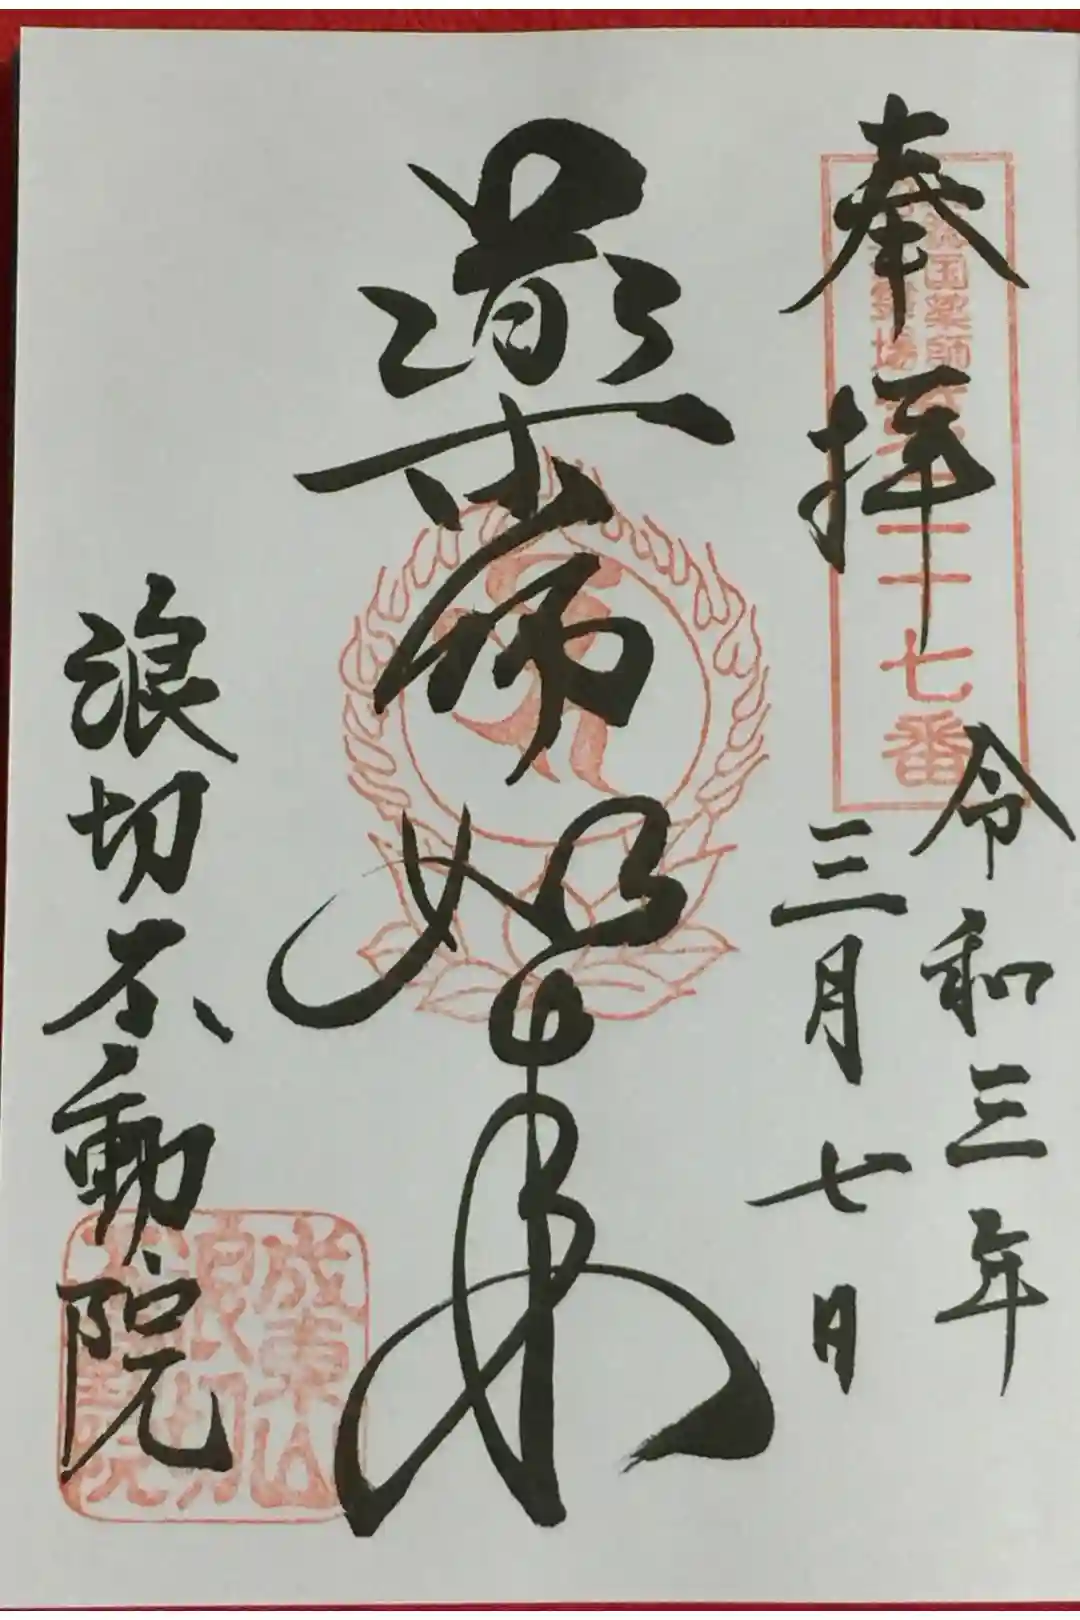 奉拝
令和三年
三月七日
国薬師
霊場第三十七番
薬師如来
浪切不動院
成東山
浪切
不動院